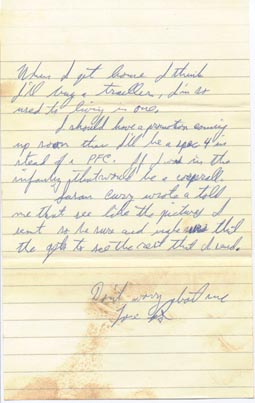 When I get home I think
I'll buy a trailler, I'm so
used to living in one.
I should have a promotion coming
up soon then I'll be a spec 4 in
stead of a PFC. If I was in the
infantry that would be a corprall.
Curry wrote & told
me that see like the pictures I
sent so be sure and
the to see the rest that I send.
Don't worry about me
Love